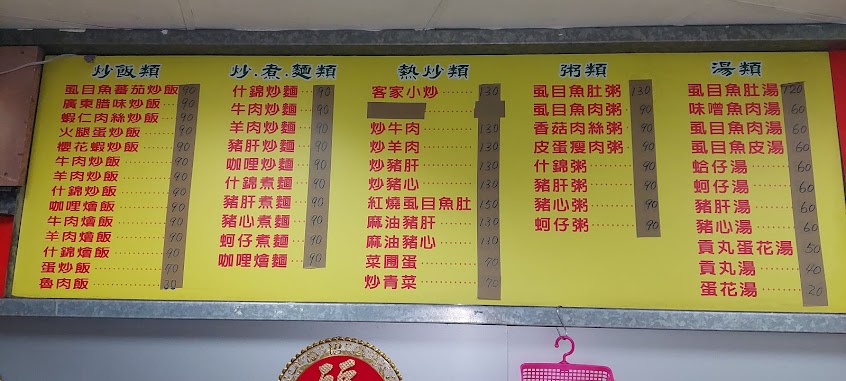 炒飯類
虱目魚蕃茄炒飯 90
廣東腊味炒飯 90
蝦仁肉絲炒飯 90
火腿蛋炒飯 90
櫻花蝦炒飯 90
牛肉炒飯 90
羊肉炒飯 90
什錦炒飯 90
咖哩燴飯 90
牛肉燴飯 90
羊肉燴飯 90
什錦燴飯 90
蛋炒飯 90
魯肉飯 30
炒.煮.麵類
什錦炒麵 90
牛肉炒麵 90
羊肉炒麵 90
豬肝炒麵 90
咖哩炒麵 90
什錦煮麵 90
豬肝煮麵 90
豬心煮麵 90
蚵仔煮麵 90
咖哩燴麵 90
熱炒類
客家小炒 130
炒牛肉 130
炒羊肉 130
炒豬肝 130
炒豬心 130
紅燒虱目魚肚 150
麻油豬肝 130
麻油豬心 110
菜圃蛋 70
炒青菜 70
粥類
虱目魚肚粥 130
虱目魚肉粥 90
香菇肉絲粥 90
皮蛋瘦肉粥 90
什錦粥 90
豬肝粥 90
豬心粥 90
蚵仔粥 90
湯類
虱目魚肚湯
味噌魚肉湯 60
虱目魚肉湯 60
虱目魚皮湯 60
蛤仔湯 60
蚵仔湯 60
豬肝湯 60
豬心湯 60
貢丸蛋花湯 50
貢丸湯 40
蛋花湯 20